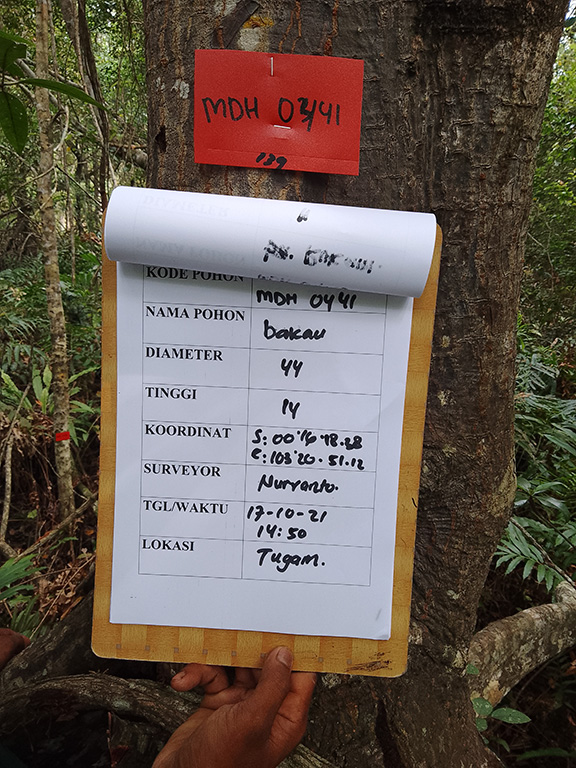 MDH 0441
139
KODE POHON MDH 0441
NAMA POHON bakau
DIAMETER 44
TINGGI 14
KOORDINAT S: 00°16'48.28
E: 103°20.51.12
SURVEYOR Nuryanto.
TGL/WAKTU 17-10-21
14:50
LOKASI Tugam.